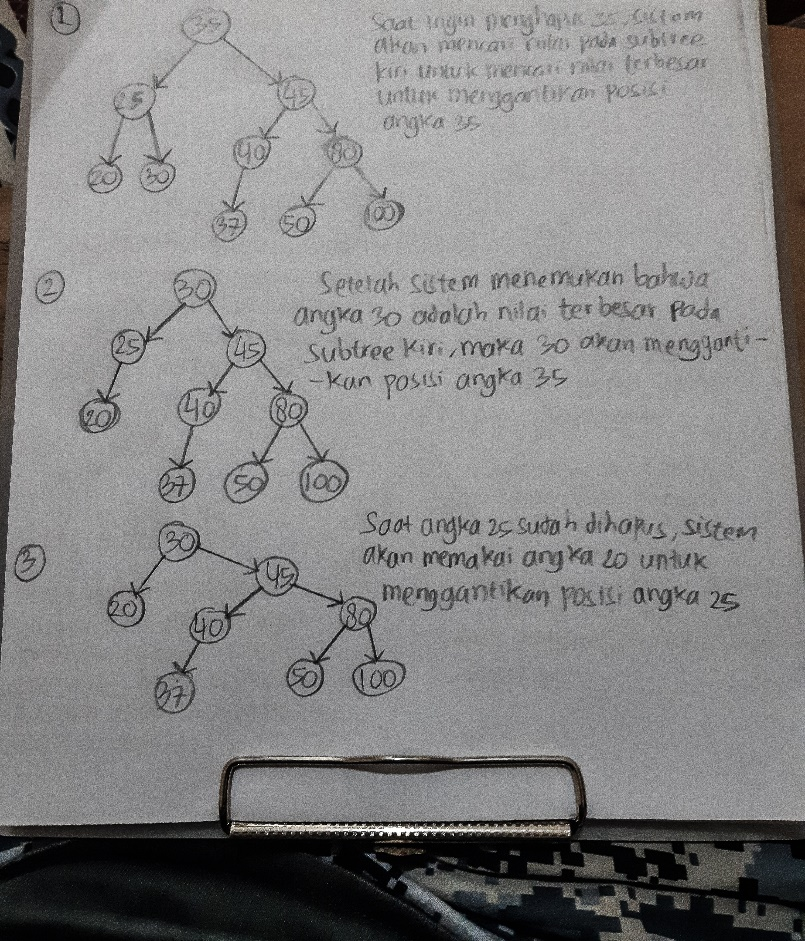 1
35
Saat ingin menghapus 35, sistem
akan mencari nilai pada subtree
kiri untuk mencari nilai terbesar
untuk menggantikan posisi
angka 35
25 45
40 80
20 30
37 50 100
2
30
Setelah sistem menemukan bahwa
angka 30 adalah nilai terbesar pada
subtree kiri, maka 30 akan mengganti-
-kan posisi angka 35
25 45
20 40 80
37 50 100
3
30
Saat angka 25 sudah dihapus, sistem
akan memakai angka 20 untuk
menggantikan posisi angka 25
45
20 40 80
37 50 100